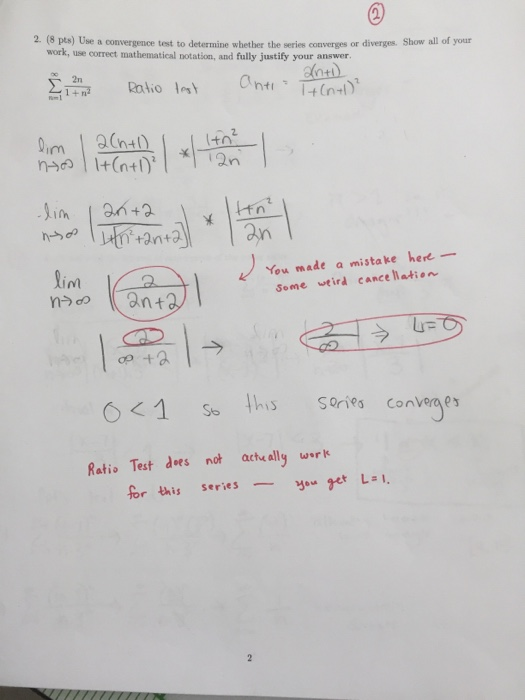 ②
2. (8 pts) Use a convergence test to determine whether the series converges or diverges. Show all of your
work, use correct mathematical notation, and fully justify your answer.
∞ Σ n=1 2n/(1+n²) Ratio Test aₙ₊₁ = 2(n+1)/(1+(n+1)²)
lim n→∞ |2(n+1)/(1+(n+1)²)| * |(1+n²)/2n|
lim n→∞ |(2n+2)/(1+[n²+2n+2])| * |(1+n²)/2n|
You made a mistake here —
some weird cancellation
lim n→∞ |2/(2n+2)|
|2/(∞+2)| → |2/∞| ⇒ L=0
0<1 so this series converges
Ratio Test does not actually work
for this series — you get L=1.
2